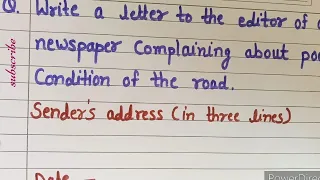 Q. Write a letter to the editor of a
newspaper Complaining about
Condition of the road.
Sender's address (in three lines)
subscribe
PowerDirec